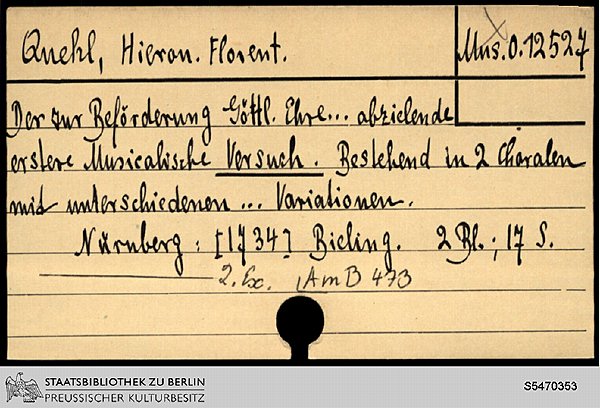 Quehl, Hieron. Florent.
Mus. O. 12527
Der zur Beförderung Göttl. Ehre... abzielende
erstere Musicalische Versuch. Bestehend in 2 Choralen
mit unterschiedenen ... Variationen.
Nürnberg: [1734] Bieling. 2 Bl.; 17 S.
2. Ex. AmB 473
STAATSBIBLIOTHEK ZU BERLIN
PREUSSISCHER KULTURBESITZ
S5470353